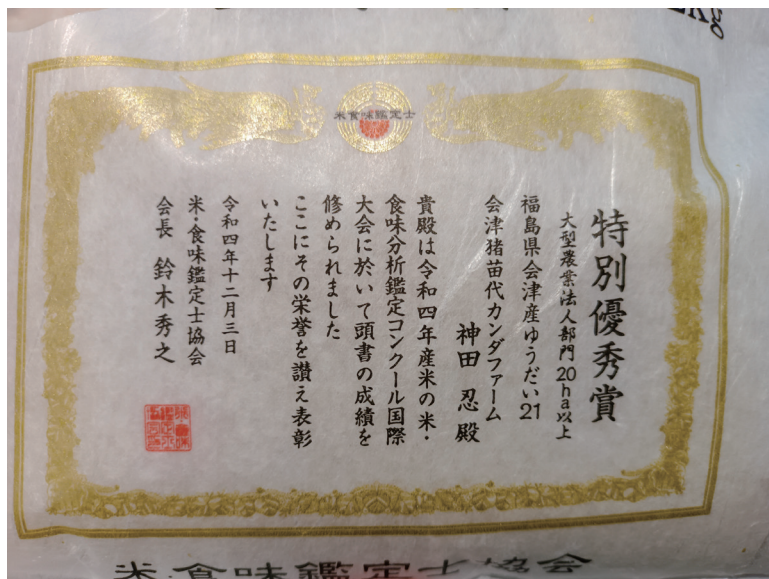 米食味鑑定士
特別優秀賞
大型農業法人部門20ha以上
福島県会津産ゆうだい21
会津猪苗代カンダファーム
神田 忍 殿
貴殿は令和四年産米の米・
食味分析鑑定コンクール国際
大会に於いて頭書の成績を
修められました
ここにその栄誉を讃え表彰
いたします
令和四年十二月三日
米・食味鑑定士協会
会長 鈴木秀之
米・食味鑑定士協会